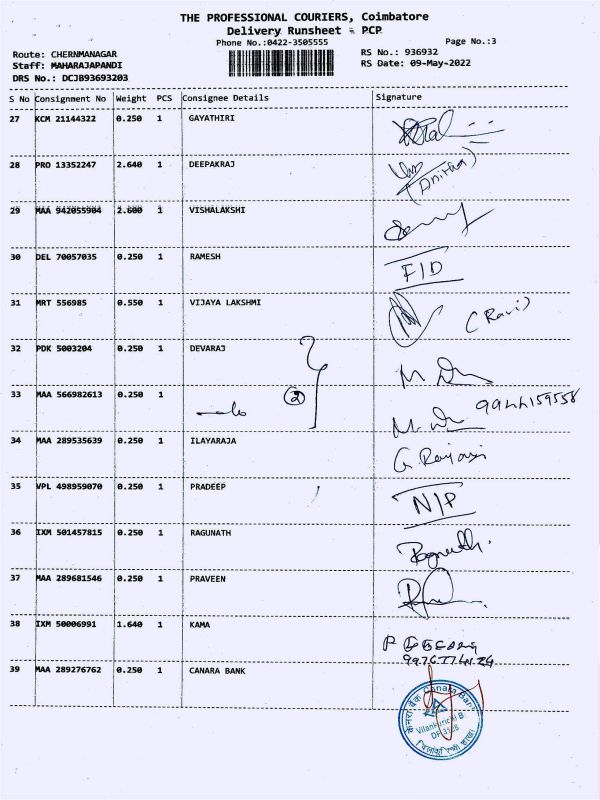 THE PROFESSIONAL COURIERS, Coimbatore
Delivery Runsheet - PCP
Phone No.:0422-3505555 Page No.:3
Route: CHERNMANAGAR RS No.: 936932
Staff: MAHARAJAPANDI RS Date: 09-May-2022
DRS No.: DCJB93693203
S No Consignment No Weight PCS Consignee Details Signature
27 KCM 21144322 0.250 1 GAYATHIRI
28 PRO 13352247 2.640 1 DEEPAKRAJ (Anitha)
29 MAA 942055904 2.600 1 VISHALAKSHI
30 DEL 70057035 0.250 1 RAMESH F/D
31 MRT 556985 0.550 1 VIJAYA LAKSHMI (Ravi)
32 PDK 5003204 0.250 1 DEVARAJ
33 MAA 566982613 0.250 1 2 9944159558
34 MAA 289535639 0.250 1 ILAYARAJA
35 VPL 498959070 0.250 1 PRADEEP N/P
36 IXM 501457815 0.250 1 RAGUNATH Ragunath.
37 MAA 289681546 0.250 1 PRAVEEN
38 IXM 50006991 1.640 1 KAMA
39 MAA 289276762 0.250 1 CANARA BANK
केनरा बैंक Canara Bank